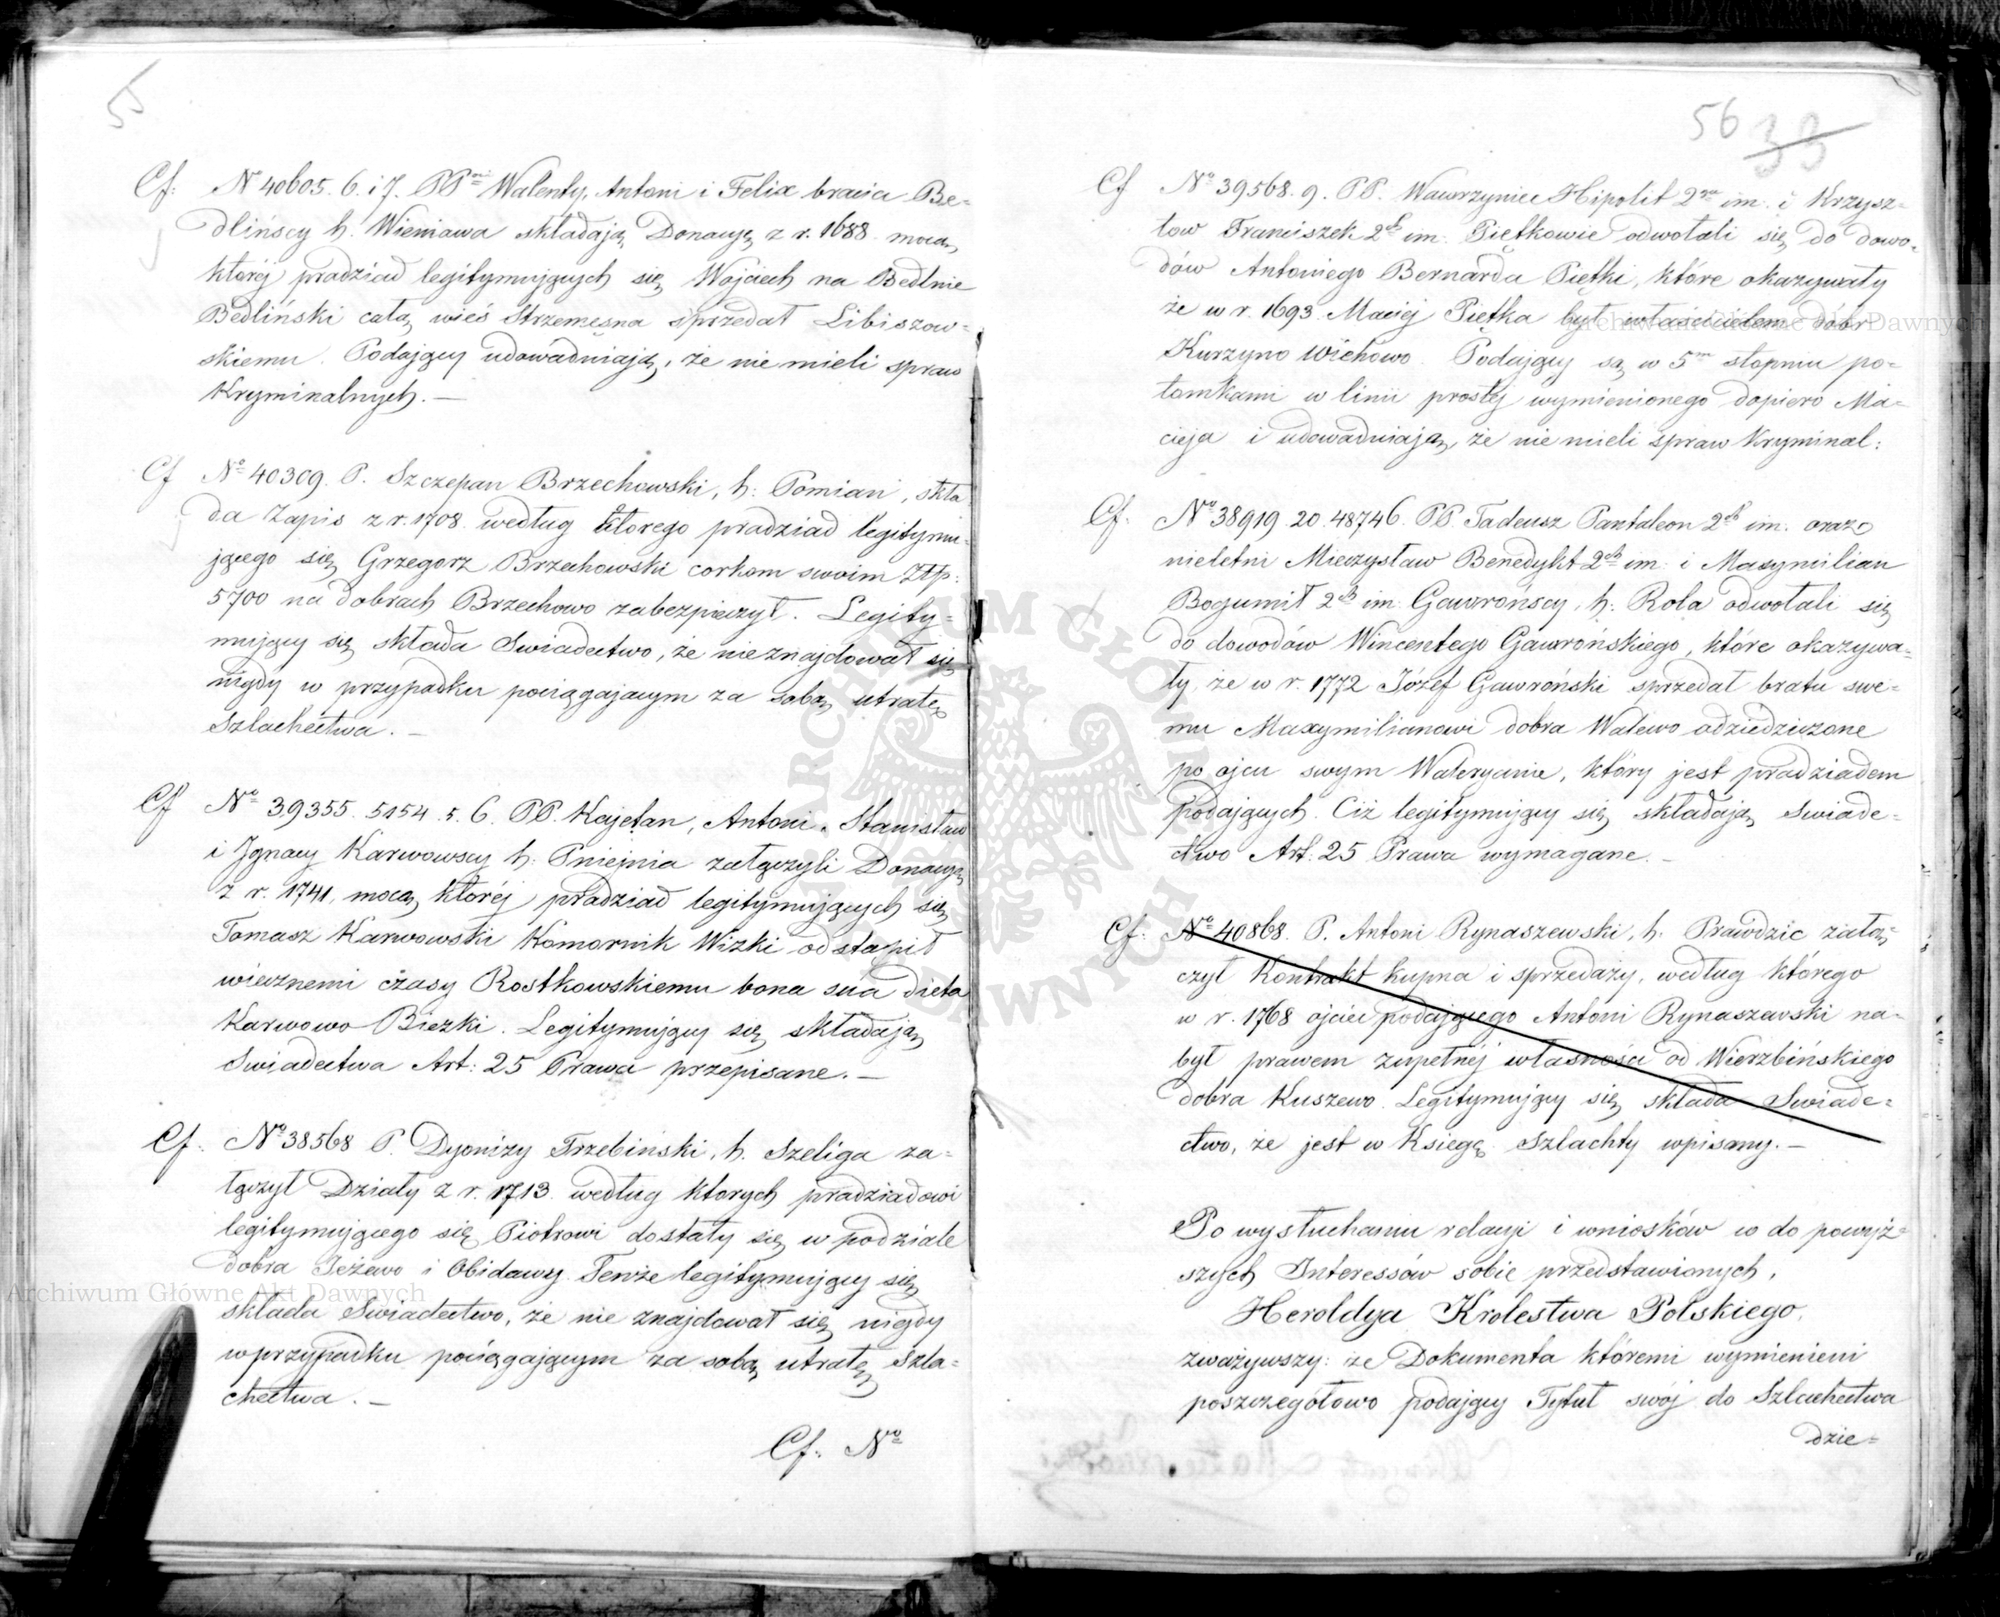 55
Cf: No 40605. 6. i 7. PPwie Walenty, Antoni i Felix bracia Be=
dlińscy h. Wieniawa składają Donacyę z r. 1688. mocą
której pradziad legitymujących się Wojciech na Bedlnie
Bedliński całą wieś Strzemesna sprzedał Libiszow=
skiemu. Podający udowadniają, że nie mieli spraw
Kryminalnych. —
Cf No 40309. P. Szczepan Brzechowski, h: Pomian, skła
da Zapis z r. 1708. według którego pradziad legitymu=
jącego się Grzegorz Brzechowski corkom swoim Złp:
5700 na dobrach Brzechowo zabezpieczył. Legity=
mujący się składa Swiadectwo, że nie znajdował się
nigdy w przypadku pociągającym za sobą utratę
Szlachectwa. —
Cf No 39355. 5154. 5. 6. PP. Kajetan, Antoni, Stanisław
i Ignacy Karwowscy h. Pniejnia załączyli Donacyą
z r. 1741, mocą której pradziad legitymujących się
Tomasz Karwowski Komornik Wizki odstąpił
wiecznemi czasy Rostkowskiemu bona sua dicta
Karwowo Biezki. Legitymujący się składają
Swiadectwa Art: 25 Prawa przepisane. —
Cf: No 38568 P. Dyonizy Trzebiński, h. Szeliga za=
łączył Działy z r. 1713. według ktorych pradziadowi
legitymującego się Piotrowi dostały się w podziale
dobra Jeżewo i Obidawy. Tenże legitymujący się
składa Swiadectwo, że nie znajdował się nigdy
w przypadku pociągającym za sobą utratę Szla=
chectwa. —
Cf: No
56 33
Cf No 39568. 9. PP. Wawrzyniec Hipolit 2ga im. i Krzysz=
tow Franciszek 2ch im. Piętkowie odwołali się do dowo=
dów Antoniego Bernarda Piętki, które okazywały
że w r. 1693. Maciej Piętka był właścicielem dóbr
Kurzyno Wichowo. Podający są w 5m stopniu po=
tomkami w linii prostej wymienionego dopiero Ma=
cieja i udowadniają, że nie mieli spraw Kryminal:
Cf. No 38919. 20. 48746. PP. Tadeusz Pantaleon 2ch im. oraz
nieletni Mieczysław Benedykt 2ch im. i Maxymilian
Bogumił 2ch im. Gawrońscy, h. Rola odwołali się
do dowodów Wincentego Gawrońskiego, które okazywa=
ły, że w r. 1772 Józef Gawroński sprzedał bratu swe=
mu Maxymilianowi dobra Walewo odziedziczone
po ojcu swym Waleryanie, który jest pradziadem
podających. Ciż legitymujący się składają Swiade=
ctwo Art: 25 Prawa wymagane. —
Cf: No 40868. P. Antoni Rynaszewski, h. Prawdzic załą=
czył Kontrakt kupna i sprzedaży, według którego
w r. 1768 ojciec podającego Antoni Rynaszewski na=
był prawem zupełnéj własności od Wierzbińskiego
dobra Kuszewo. Legitymujący się składa Swiade=
ctwo, że jest w Księgę Szlachty wpisany. —
Po wysłuchaniu relacyi i wniosków co do powyż=
szych Interessów sobie przedstawionych,
Heroldya Krolestwa Polskiego,
zważywszy: że Dokumenta któremi wymienieni
poszczegółowo podający Tytuł swój do Szlachectwa
dzie=
Archiwum Główne Akt Dawnych
Archiwum Główne Akt Dawnych
ARCHIWUM GŁÓWNE AKT DAWNYCH